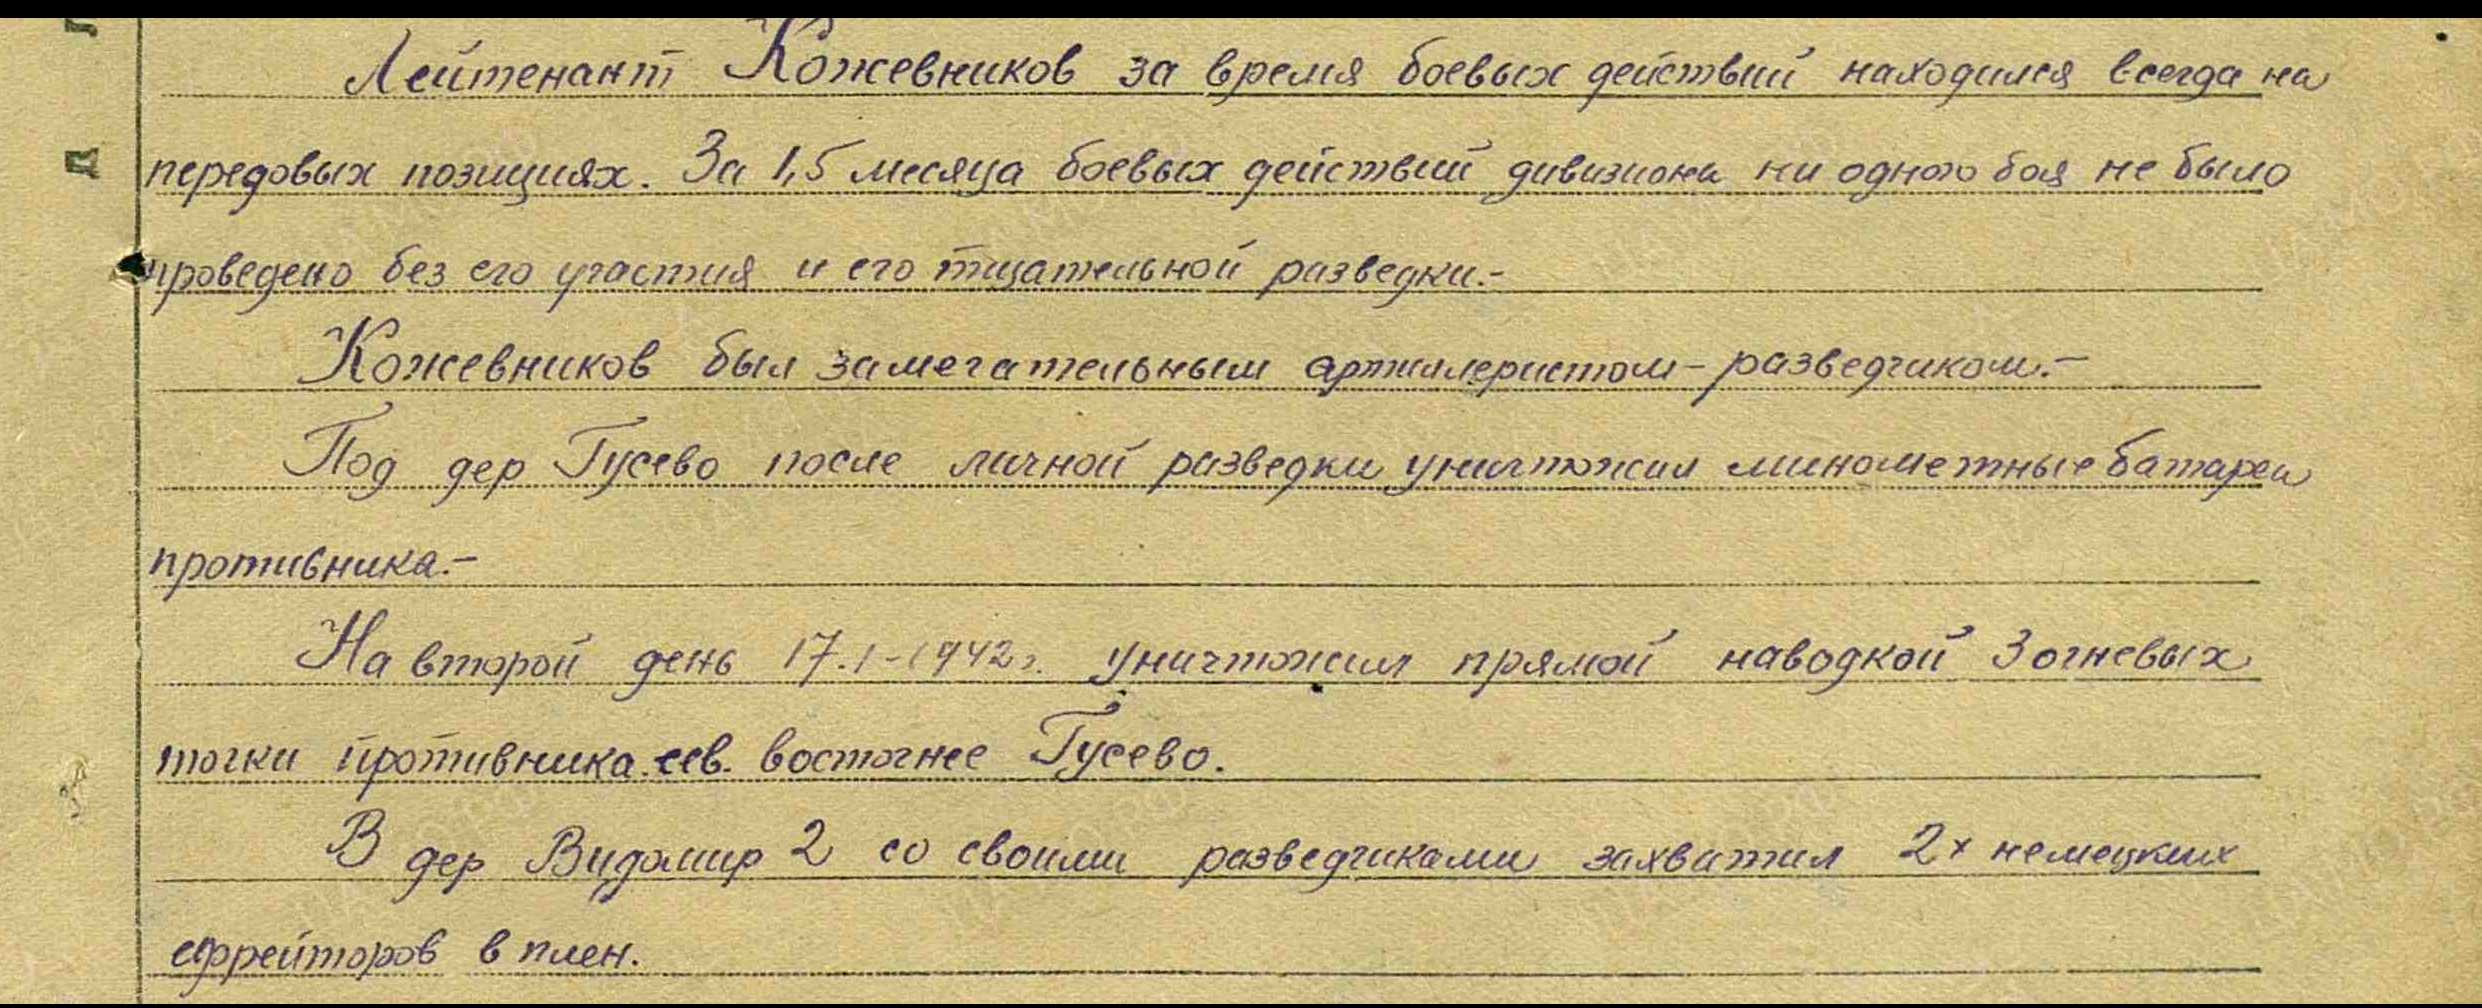 Лейтенант Кожевников за время боевых действий находился всегда на
передовых позициях. За 1,5 месяца боевых действий дивизиона ни одного боя не было
проведено без его участия и его тщательной разведки.-
Кожевников был замечательным артиллеристом-разведчиком.-
Под дер Гусево после личной разведки уничтожил минометные батареи
противника.-
На второй день 17.1-1942г. уничтожил прямой наводкой 3 огневых
точки противника сев. восточнее Гусево.
В дер Видомир 2 со своими разведчиками захватил 2х немецких
ефрейторов в плен.